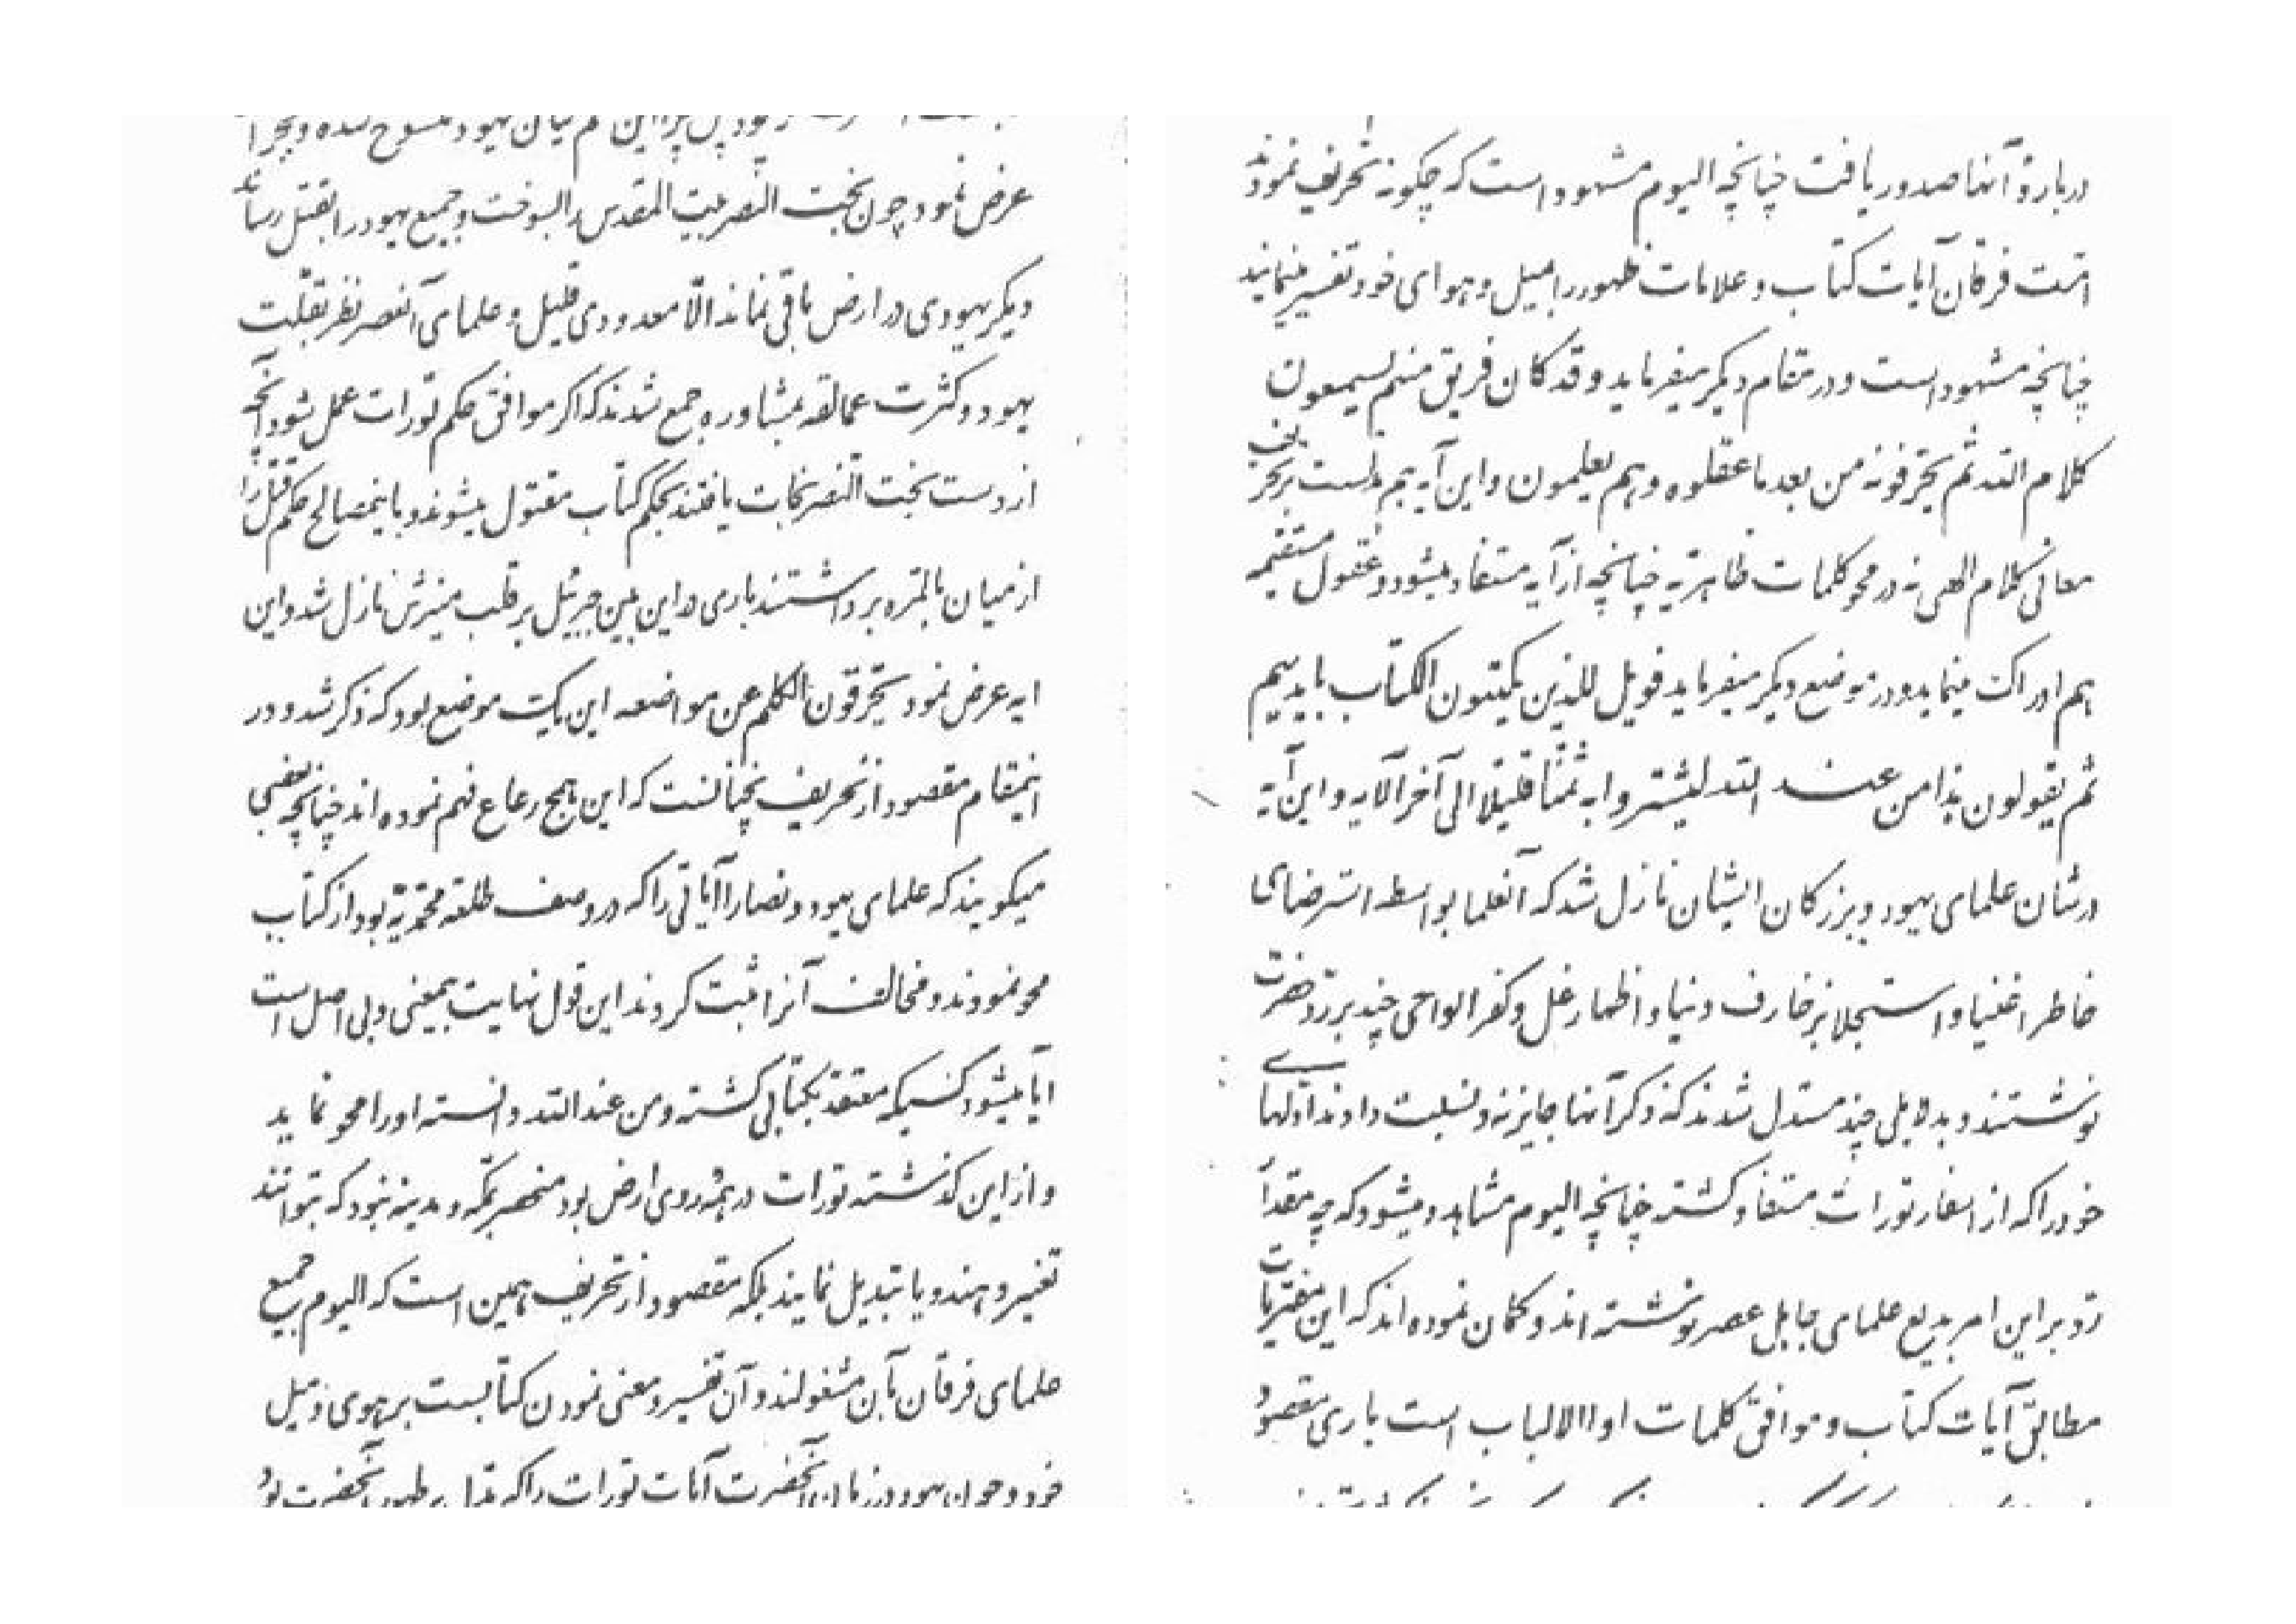 پس چرا این حکم میان یهود منسوخ شده و مجرا
عرض نمود چون بخت النصر بیت المقدس را بسوخت و جمیع یهود را بقتل رساند
دیگر یهودی در ارض باقی نماند الّا معدودی قلیل و علمای آنعصر نظر بقلّت
یهود و کثرت عمالقه بمشاوره جمع شدند که اگر موافق حکم تورات عمل شود آنچه
از دست بخت النّصر نجات یافتند بحکم کتاب مقتول میشوند و باینمصالح حکم قتل را
از میان بالمرّه برداشتند باری در این بین جبرئیل بر قلب منیرش نازل شد و این
ایه عرض نمود یحرّفون الکلم عن مواضعه این یک موضع بود که ذکر شد و در
اینمقام مقصود از تحریف نچنانست که این همج رعاع فهم نموده اند چنانچه بعضی
میگویند که علمای یهود و نصارا آیاتی را که در وصف طلعت محمّدیّه بود از کتاب
محو نمودند و مخالف آنرا ثبت کردند این قول نهایت بیمعنی و بی اصل است
ایا میشود کسیکه معتقد بکتابی گشته و من عند الله دانسته او را محو نماید
و از این گذشته تورات در همه روی ارض بود منحصر بمکّه و مدینه نبود که بتوانند
تغییر دهند و یا تبدیل نمایند بلکه مقصود از تحریف همین است که الیوم جمیع
علمای فرقان بآن مشغولند و آن تفسیر و معنی نمودن کتابست بر هوی و میل
خود و چون یهود در زمان آنحضرت آیات تورات را که مدلّ بر ظهور آنحضرت بود
درباره آنها صدور یافت چنانچه الیوم مشهود است که چگونه تحریف نمودند
امّت فرقان آیات کتاب و علامات ظهور را بمیل و هوای خود تفسیر مینمایند
چنانچه مشهود است و در مقام دیگر میفرماید و قد کان فریق منهم یسمعون
کلام الله ثم یحرّفونه من بعد ما عقلوه و هم یعلمون و این آیه هم مدلست بر تحریف
معانی کلام الهی نه در محو کلمات ظاهریّه چنانچه از آیه مستفاد میشود و عقول مستقیمه
هم ادراک مینماید و در موضع دیگر میفرماید فویل للذین یکتبون الکتاب بایدیهم
ثم یقولون هذا من عند الله لیشتروا به ثمنا قلیلا الی آخر الآیه و این آیه
در شأن علمای یهود و بزرگان ایشان نازل شد که آنعلما بواسطه استرضای
خاطر اغنیا و استجلاب زخارف دنیا و اظهار غل و کفر الواحی چند بر رد حضرت
نوشتند و بدلایلی چند مستدل شدند که ذکر آنها جایز نه و نسبت دادند ادله‌های
خود را که از اسفار تورات مستفاد گشته چنانچه الیوم مشاهده میشود که چه مقدار
ردّ بر این امر بدیع علمای جاهل عصر نوشته اند و گمان نموده اند که این مفتریات
مطابق آیات کتاب و موافق کلمات اولا الالباب است باری مقصود